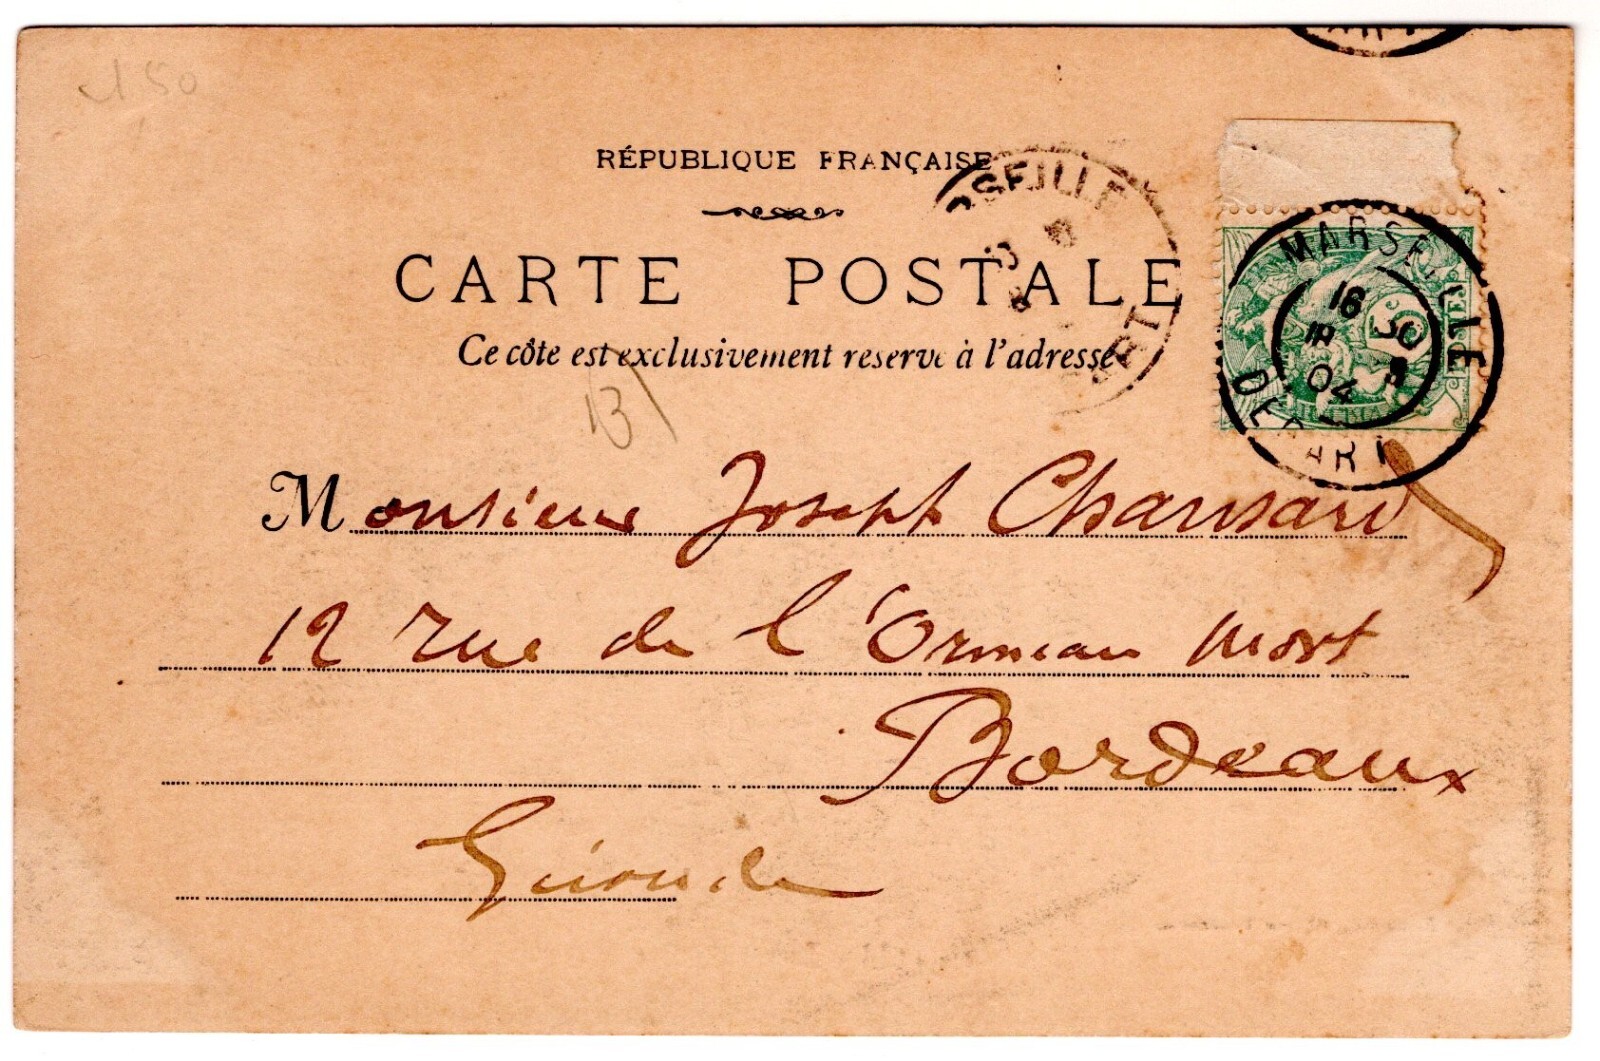 150
RÉPUBLIQUE FRANÇAISE
CARTE POSTALE
Ce côte est exclusivement reservé à l'adresse
MARSEILLE
18 30
04
DEPART
13
Monsieur Joseph Chansard
12 rue de l'Ormeau Mort
Bordeaux
Gironde